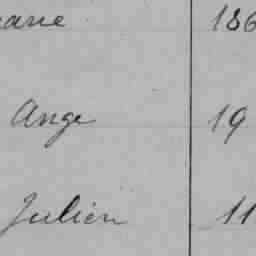 186
Ange 19
Julien 11